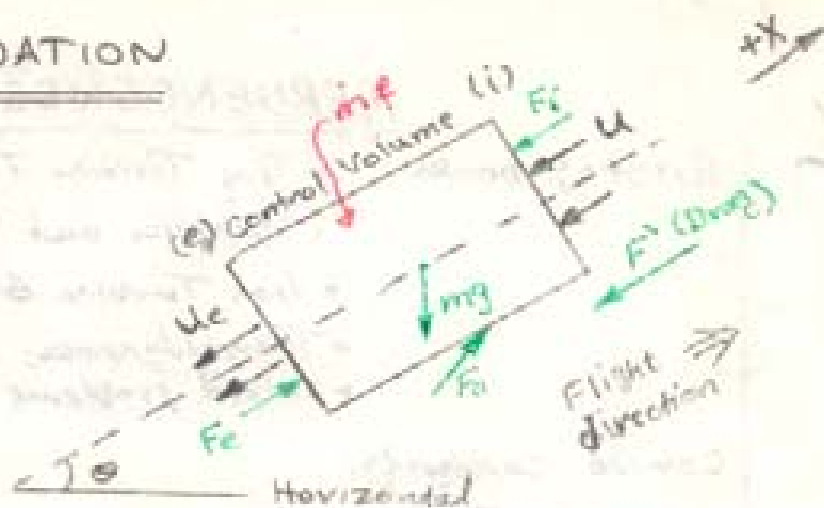 DATION
+X
ṁf
(i)
Fi
u
(e) Control Volume
F' (Drag)
ue
mg
Fe
Flight
direction
θ
Horizondal